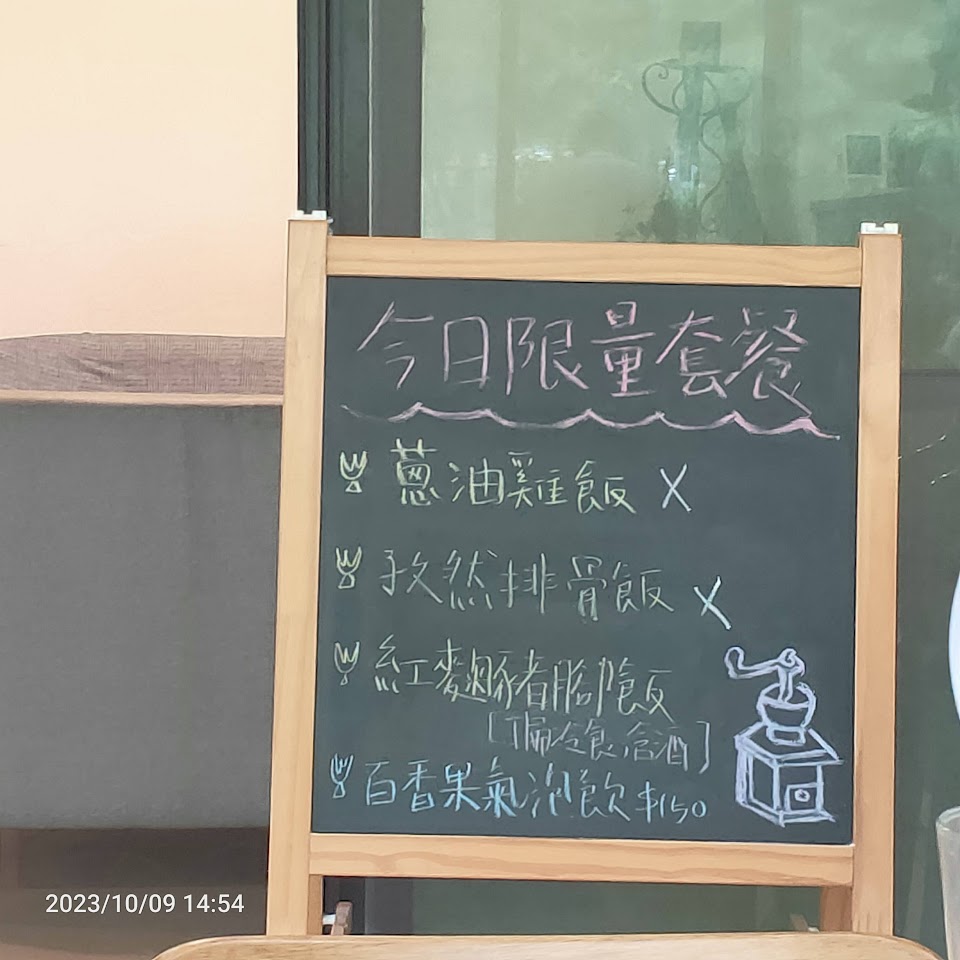 今日限量套餐
蔥油雞飯 X
孜然排骨飯 X
紅麴豬腳飯
[偏冷食,含酒]
百香果氣泡飲 $150
2023/10/09 14:54